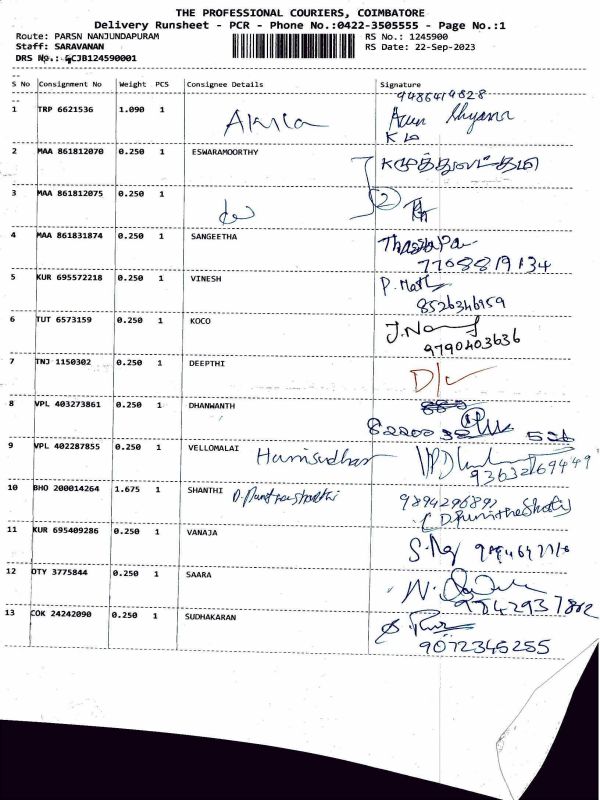 THE PROFESSIONAL COURIERS, COIMBATORE
Delivery Runsheet - PCR - Phone No.:0422-3505555 - Page No.:1
Route: PARSN NANJUNDAPURAM RS No.: 1245900
Staff: SARAVANAN RS Date: 22-Sep-2023
DRS No.: GCJB124590001
S No Consignment No Weight PCS Consignee Details Signature
9486419828
1 TRP 6621536 1.090 1 Akila Arun Shyam
2 MAA 861812070 0.250 1 ESWARAMOORTHY
3 MAA 861812075 0.250 1 2
4 MAA 861831874 0.250 1 SANGEETHA
7708819134
5 KUR 695572218 0.250 1 VINESH P. Math
8526346959
6 TUT 6573159 0.250 1 KOCO
9790403636
7 TNJ 1150302 0.250 1 DEEPTHI D/c
8 VPL 403273861 0.250 1 DHANWANTH
9 VPL 402287855 0.250 1 VELLOMALAI Harrisudhan
9363269449
10 BHO 200014264 1.675 1 SHANTHI
11 KUR 695409286 0.250 1 VANAJA
12 OTY 3775844 0.250 1 SAARA
13 COK 24242090 0.250 1 SUDHAKARAN
9072345255